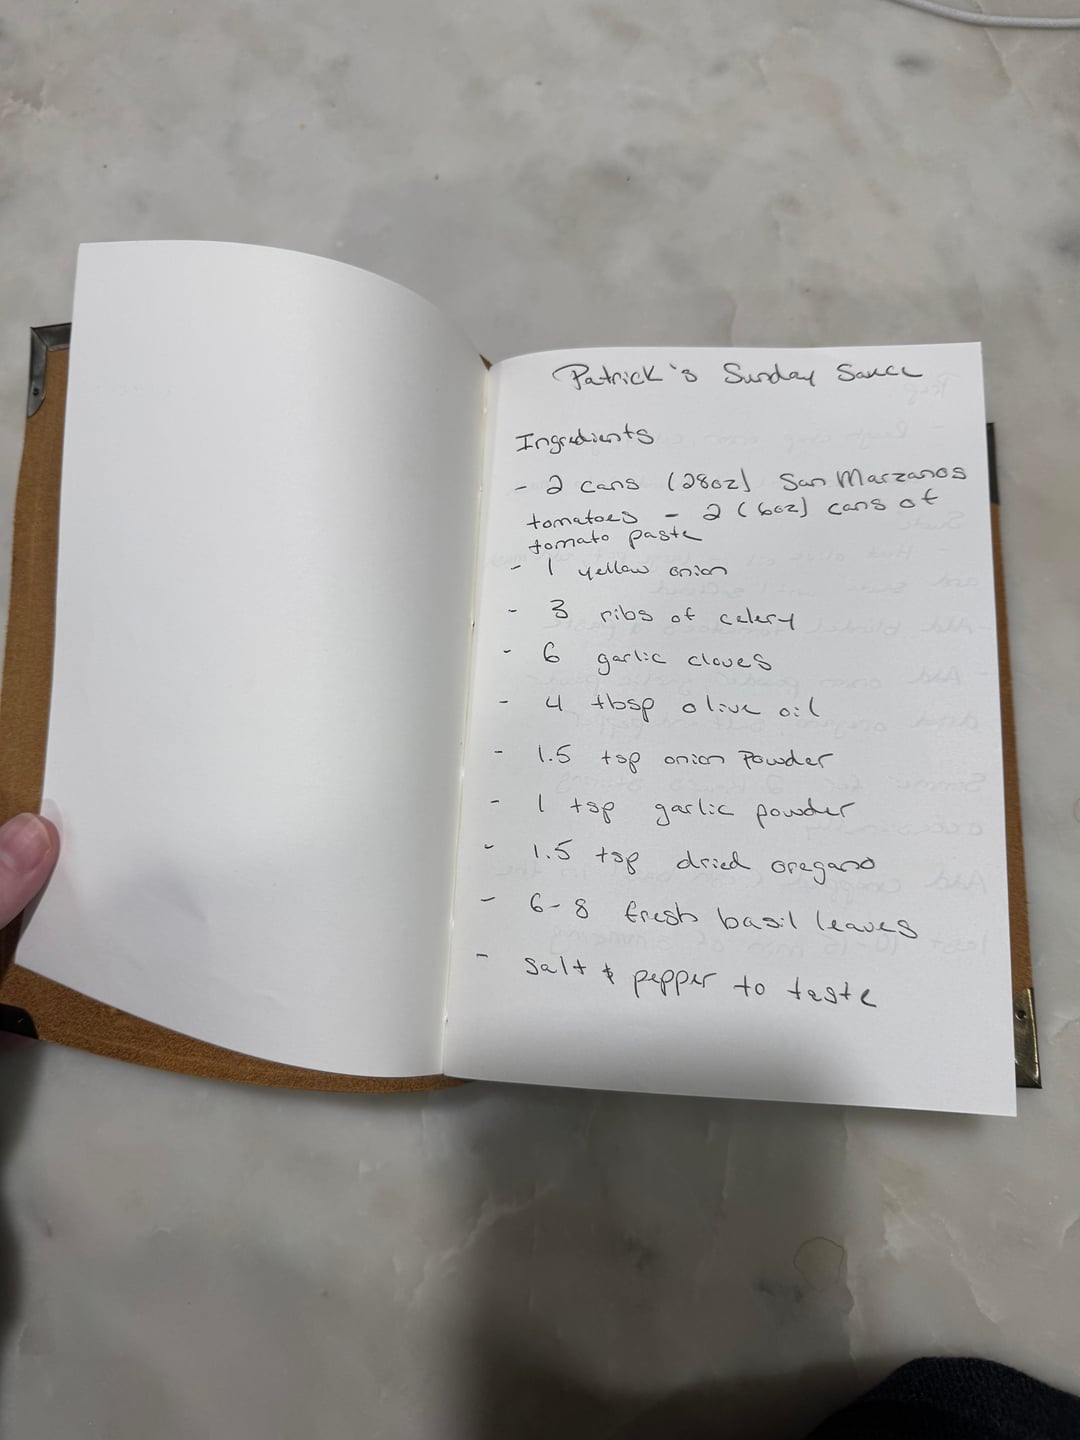 Patrick's Sunday Sauce
Ingredients
- 2 cans (28oz) San Marzanos
tomatoes - 2 (6oz) cans of
tomato paste
- 1 yellow onion
- 3 ribs of celery
- 6 garlic cloves
- 4 tbsp olive oil
- 1.5 tsp onion Powder
- 1 tsp garlic powder
- 1.5 tsp dried oregano
- 6-8 fresh basil leaves
- Salt & pepper to taste